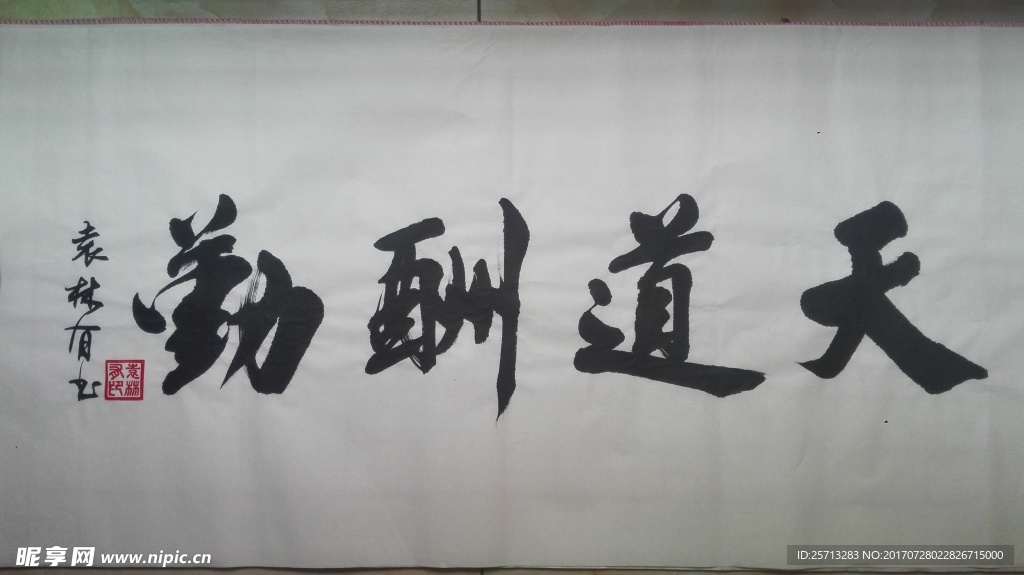 天道酬勤
袁林有书
袁林有印
昵享网 www.nipic.cn
ID:25713283 NO:20170728022826715000